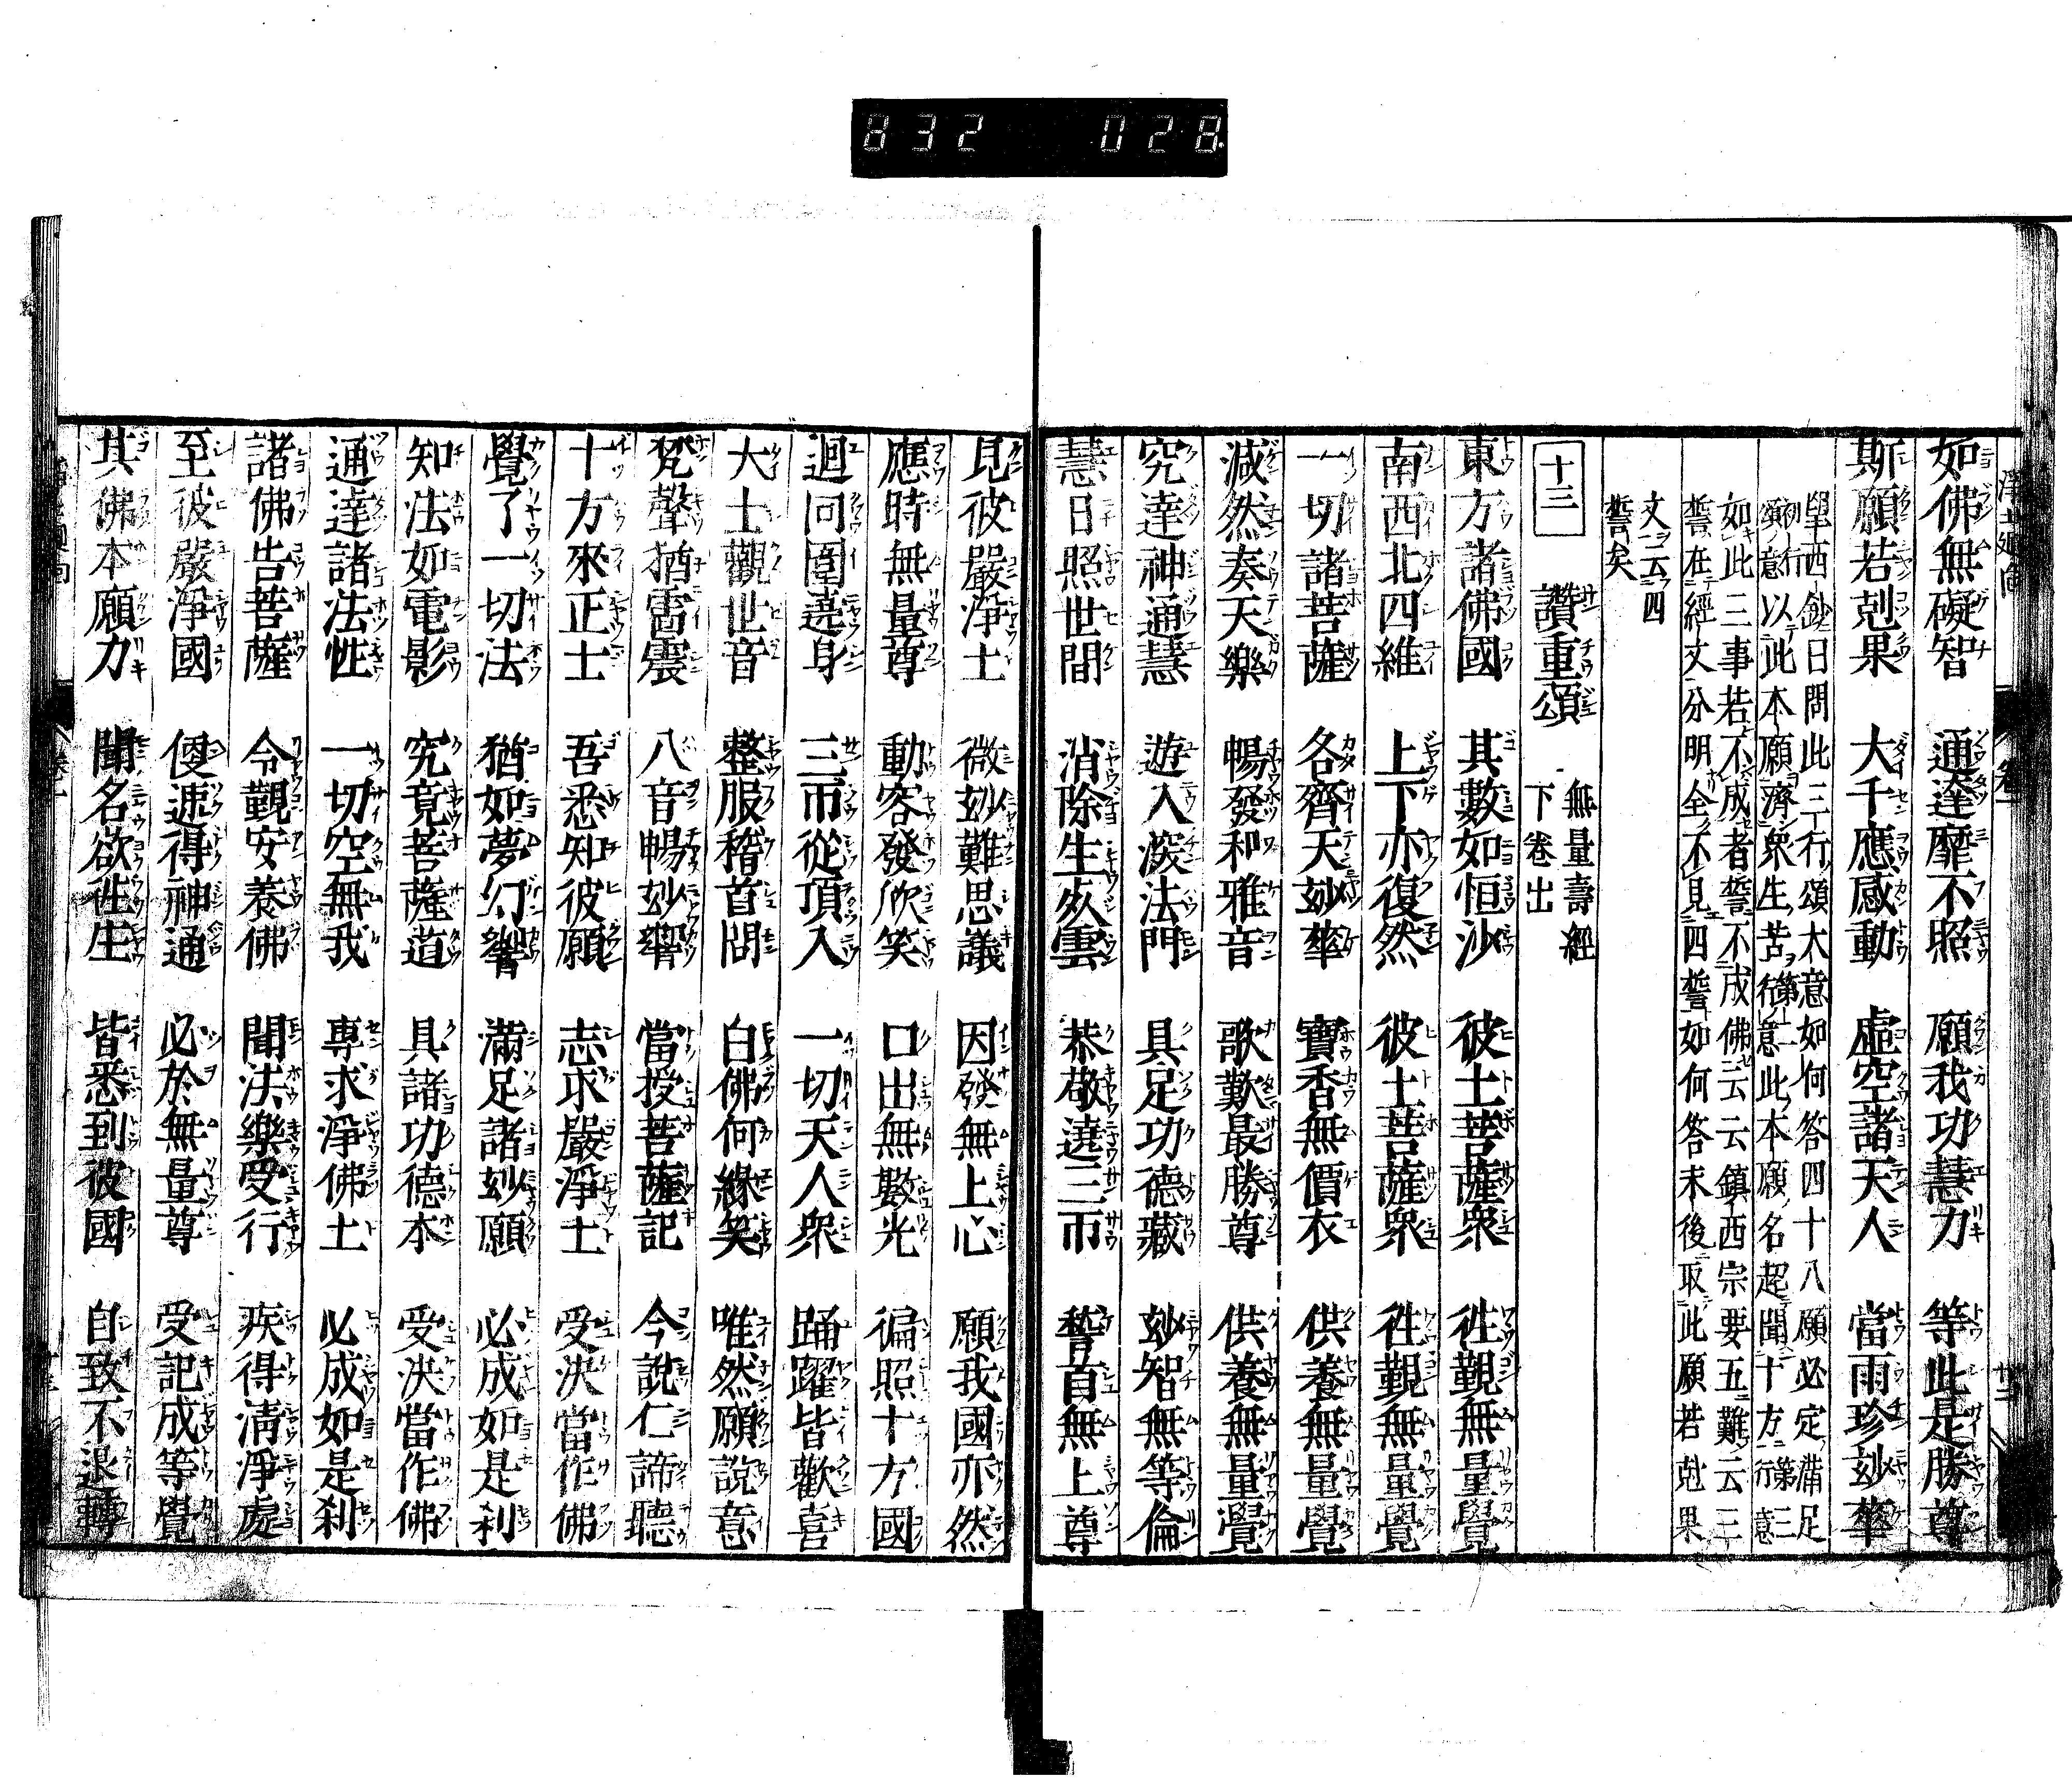 832 028.
如佛無礙智 通達靡不照 願我功慧力 等此是勝尊
斯願若剋果 大千應感動 虛空諸天人 當雨珍玅華
望西鈔曰問此三行頌大意如何答四十八願必定滿足
初行頌意以此本願濟衆生苦第二行意此本願名超聞十方第三行意
如此三事若不成者誓不成佛云云鎭西宗要五難云三
誓在經文分明全不見四誓如何答末後取此願若剋果
文云四
誓矣
十三 讚重頌 無量壽經
下卷出
東方諸佛國 其數如恒沙 彼土菩薩衆 徃覲無量覺
南西北四維 上下亦復然 彼土菩薩衆 徃覲無量覺
一切諸菩薩 各齎天玅華 寶香無價衣 供養無量覺
減然奏天樂 暢發和雅音 歌歎最勝尊 供養無量覺
究達神通慧 遊入深法門 具足功德藏 玅智無等倫
慧日照世間 消除生死雲 恭敬遶三帀 稽首無上尊
見彼嚴淨土 微玅難思議 因發無上心 願我國亦然
應時無量尊 動容發欣笑 口出無數光 徧照十方國
迴囘圍遶身 三帀從頂入 一切天人衆 踊躍皆歡喜
大士觀世音 整服稽首問 白佛何緣笑 唯然願說意
梵聲猶雷震 八音暢玅響 當授菩薩記 今說仁諦聽
十方來正士 吾悉知彼願 志求嚴淨土 受決當作佛
覺了一切法 猶如夢幻響 滿足諸玅願 必成如是刹
知法如電影 究竟菩薩道 具諸功德本 受決當作佛
通達諸法性 一切空無我 專求淨佛土 必成如是刹
諸佛告菩薩 令覲安養佛 聞法樂受行 疾得淸淨處
至彼嚴淨國 便速得神通 必於無量尊 受記成等覺
其佛本願力 聞名欲徃生 皆悉到彼國 自致不退轉